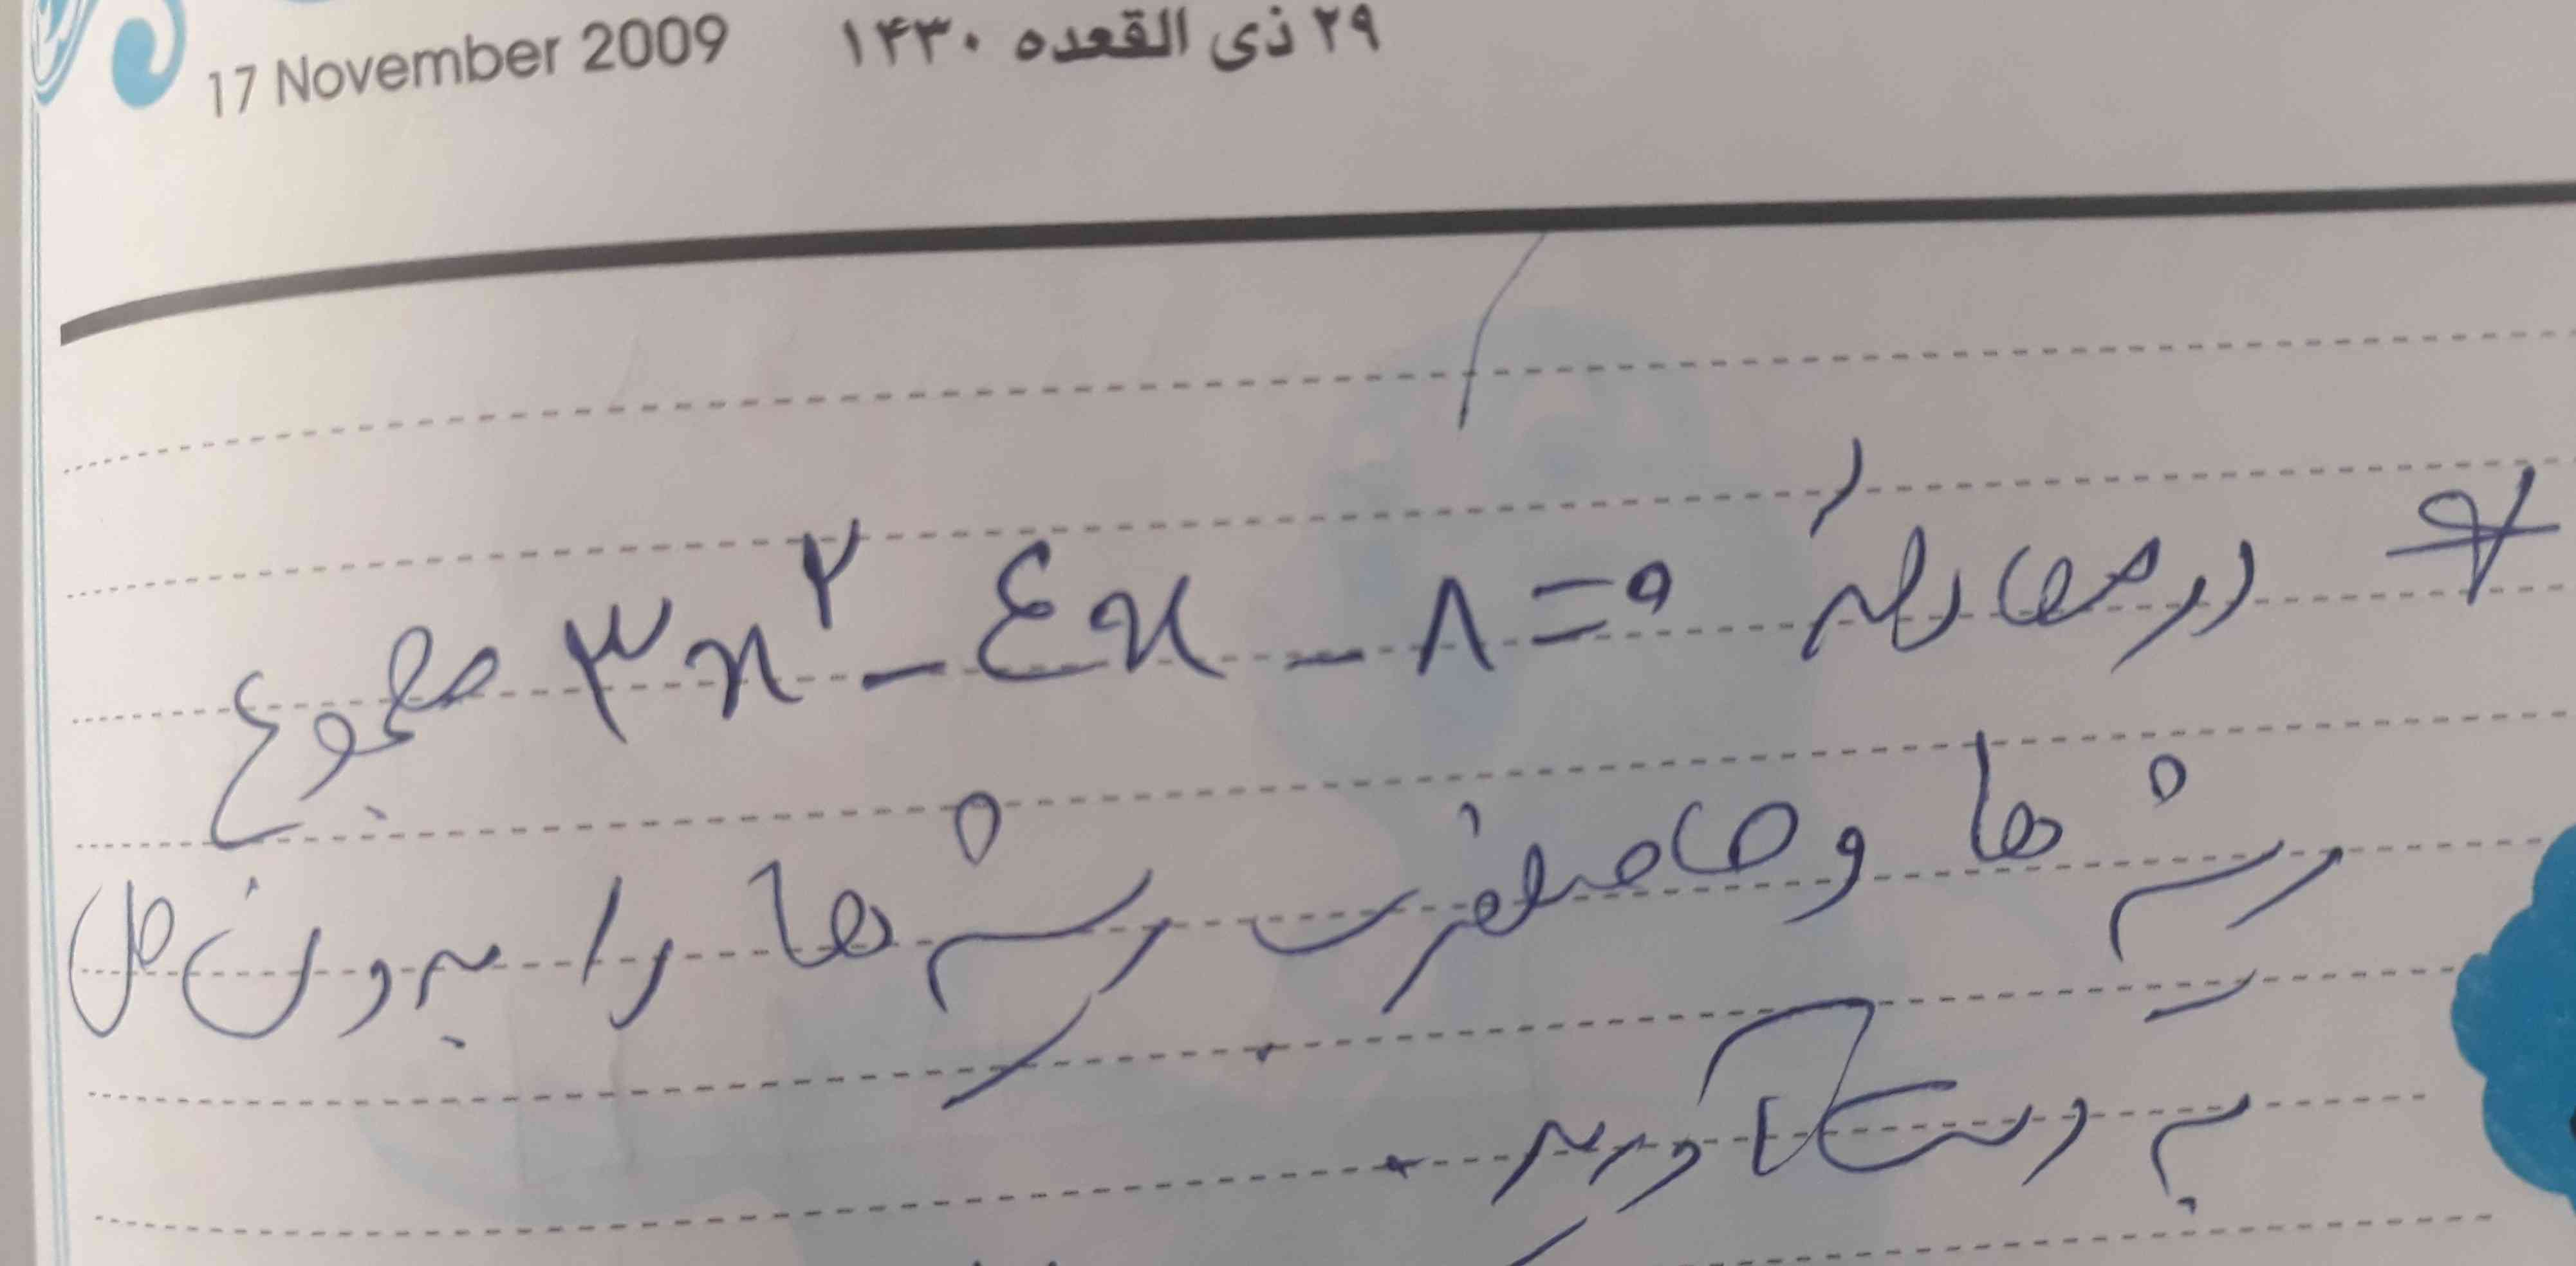 17 November 2009 ۲۹ ذی القعده ۱۴۳۰
* در معادلهٔ ۳x^۲ - ٤x - ۸ = ۰ مجموع
ریشه ها و حاصلضرب ریشه ها را بدون حل
به دست آورید.